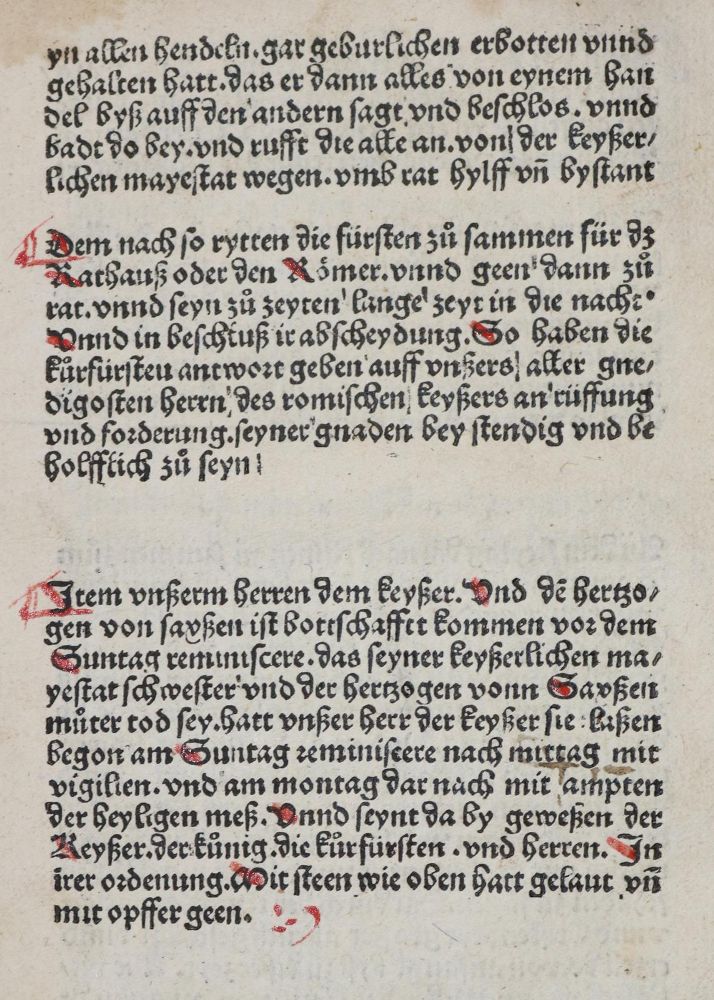 yn allen hendeln.gar geburlichen erbotten vnnd
gehalten hatt.das er dann alles von eynem han
del byß auff den andern sagt vnd beschlos. vnnd
badt do bey.vnd rufft die alle an.von der keyßer/
lichen mayestat wegen.vmb rat hylff vñ bystant
Dem nach so rytten die fürsten zů sammen für dz
Rathauß oder den Römer.vnnd geen dann zů
rat.vnnd seyn zů zeyten lange zeyt in die nacht.
Vnnd in beschluß ir abscheydung.So haben die
kůrfürsten antwort geben auff vnßers aller gne/
digosten herrn des romischen keyßers an rüffung
vnd forderung.seyner gnaden bey stendig vnd be
holfflich zů seyn
Item vnßerm herren dem keyßer. Vnd dē hertzo/
gen von saxßen ist bottschafft kommen vor dem
Suntag reminiscere.das seyner keyßerlichen ma/
yestat schwester vnd der hertzogen vonn Saxßen
můter tod sey.hatt vnßer herr der keyßer sie laßen
begon am Suntag reminiscere nach mittag mit
vigilien.vnd am montag dar nach mit ampten
der heyligen meß.Vnnd seynt da by geweßen der
Keyßer.der kůnig.die kůrfürsten .vnd herren. In
irer ordenung.Mit steen wie oben hatt gelaut vñ
mit opffer geen.